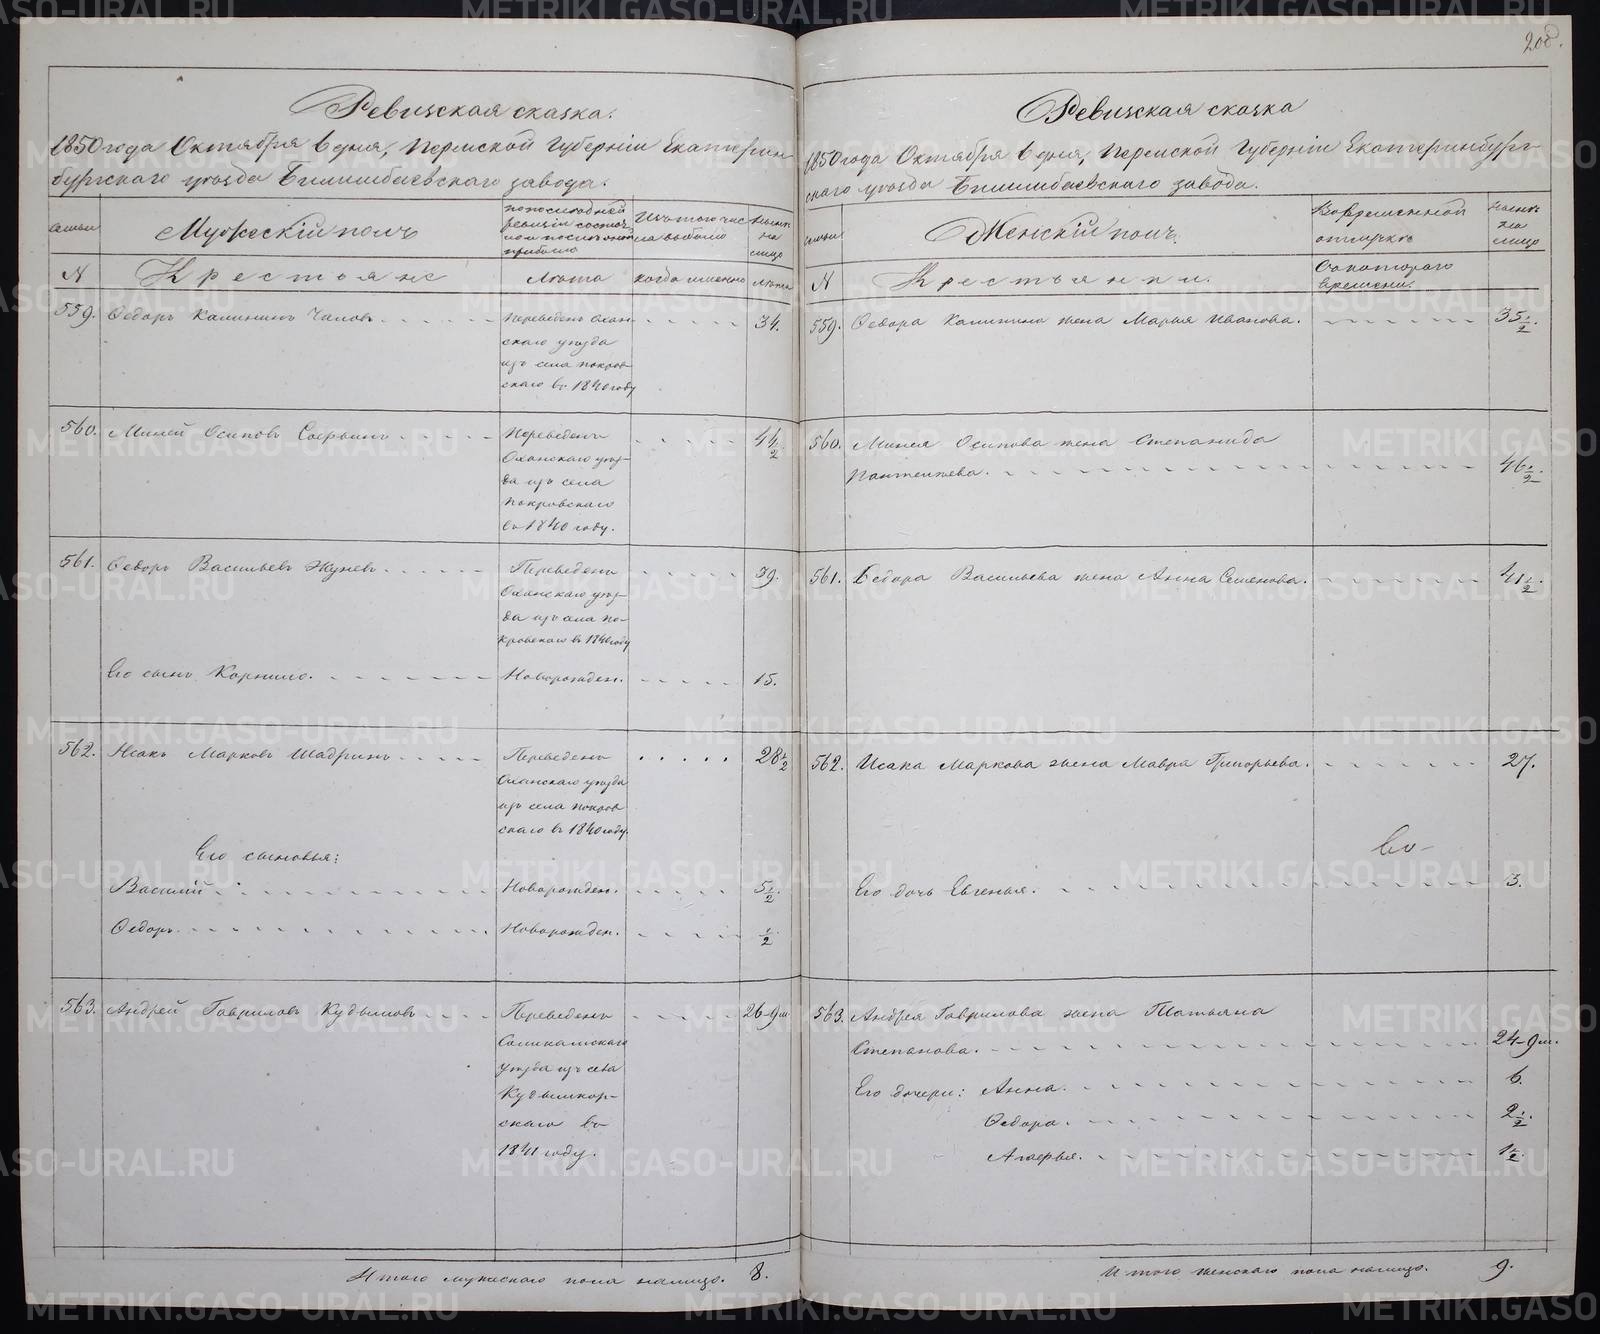 208.
Ревизская сказка.
1850 года Октября 6 дня, Пермской Губернiи Екатерин-
бургскаго уезда Билимбаевскаго завода.
семьи
Мужескiй полъ
по последней
ревизiи состоя-
ло и после оной
прибыло
Изъ того числа выбыло
ныне
на
лицо
N
Крестьяне
Лета
когда именно
лета
559. Федоръ Калининъ Чаловъ
Переведенъ Охан-
скаго уезда
изъ села Покров-
скаго въ 1840 году
34.
560. Миней Осиповъ
Переведенъ
Оханскаго уез-
да изъ села
Покровскаго
въ 1840 году.
44 1/2
561. Федоръ Васильевъ Жуневъ
Переведенъ
Оханскаго уез-
да изъ села По-
кровскаго въ 1840 году
39.
Его сынъ Корнило.
Новорожден.
15.
562. Исакъ Марковъ Шадринъ
Переведенъ
Оханскаго уезда
изъ села Покров-
скаго въ 1840 году.
28 1/2
Его сыновья:
Василiй
Новорожден.
5 1/2.
Федоръ
Новорожден.
1/2
563. Андрей Гавриловъ Кудымовъ
Переведенъ
Соликамскаго
уезда изъ села
Кудымкор-
скаго въ
1841 году.
26-9 м
Итого мужескаго пола налицо. 8.
Ревизская сказка
1850 года Октября 6 дня, Пермской Губернiи Екатеринбург-
скаго уезда Билимбаевскаго завода.
семьи
Женскiй полъ.
Во временной
отлучке
ныне
на
лицо
N
Крестьянки.
Съ котораго
времени.
559. Федора Калинина жена Марья Иванова. 35 1/2.
560. Минея Осипова жена Степанида
Пантелеева. 46 1/2.
561. Федора Васильева жена Анна Семенова. 41 1/2.
562. Исака Маркова жена Мавра Григорьева. 27.
Его дочь Евгенья. 3.
563. Андрея Гаврилова жена Татьяна
Степанова. 24-9 м.
Его дочери: Анна. 6.
Федора. 2 1/2.
Агафья. 1 1/2.
Итого женскаго пола налицо. 9.
METRIKI.GASO-URAL.RU